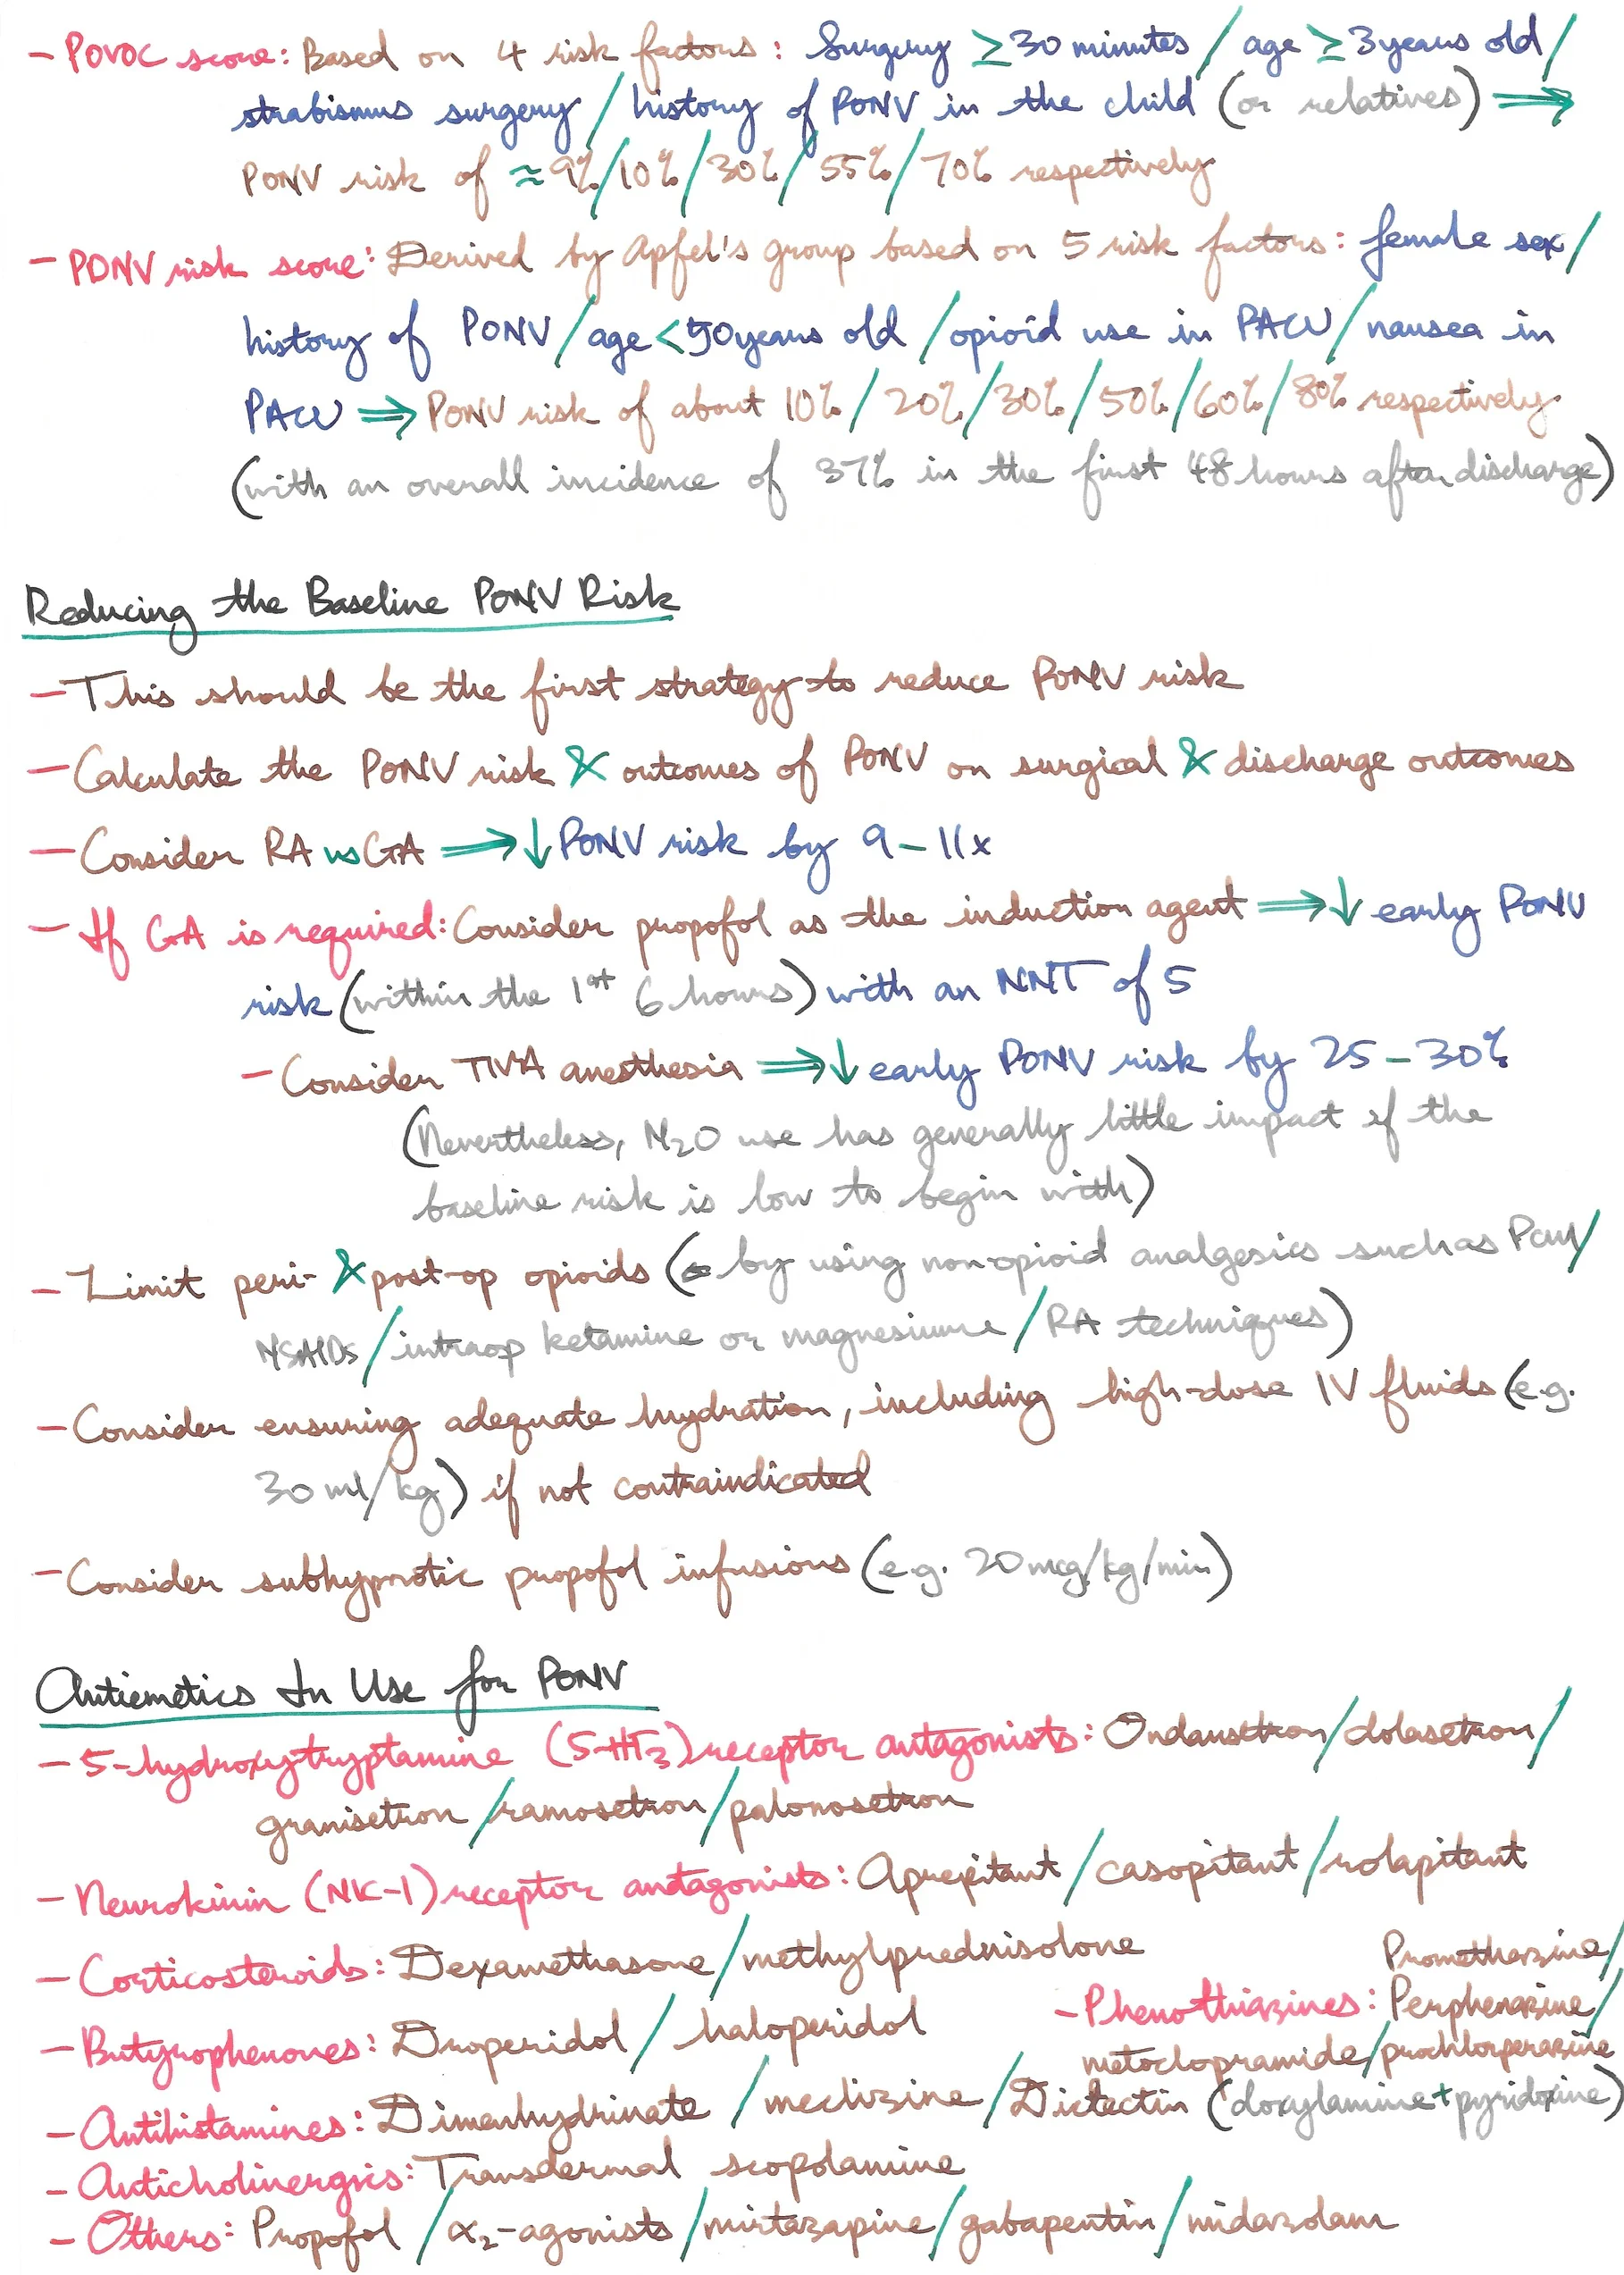 - POVOC score: Based on 4 risk factors: Surgery ≥30 minutes / age ≥3 years old /
strabismus surgery / history of PONV in the child (or relatives) ⇒
PONV risk of ≈9% / 10% / 30% / 55% / 70% respectively
- PDNV risk score: Derived by Apfel's group based on 5 risk factors: female sex /
history of PONV / age < 50 years old / opioid use in PACU / nausea in
PACU ⇒ PONV risk of about 10% / 20% / 30% / 50% / 60% / 80% respectively
(with an overall incidence of 37% in the first 48 hours after discharge)
Reducing the Baseline PONV Risk
- This should be the first strategy to reduce PONV risk
- Calculate the PONV risk & outcomes of PONV on surgical & discharge outcomes
- Consider RA vs GA ⇒ ↓ PONV risk by 9-11x
- If GA is required: Consider propofol as the induction agent ⇒ ↓ early PONV
risk (within the 1st 6 hours) with an NNT of 5
- Consider TIVA anesthesia ⇒ ↓ early PONV risk by 25-30%
(Nevertheless, N2O use has generally little impact if the
baseline risk is low to begin with)
- Limit peri- & post-op opioids (by using non-opioid analgesics such as PCM /
NSAIDs / intraop ketamine or magnesium / RA techniques)
- Consider ensuring adequate hydration, including high-dose IV fluids (e.g.
30 ml/kg) if not contraindicated
- Consider subhypnotic propofol infusions (e.g. 20 mcg/kg/min)
Antiemetics In Use for PONV
- 5-hydroxytryptamine (5-HT3) receptor antagonists: Ondansetron / dolasetron /
granisetron / ramosetron / palonosetron
- Neurokinin (NK-1) receptor antagonists: Aprepitant / casopitant / rolapitant
- Corticosteroids: Dexamethasone / methylprednisolone
- Butyrophenones: Droperidol / haloperidol
- Phenothiazines: Promethazine /
Perphenazine /
metoclopramide / prochlorperazine
- Antihistamines: Dimenhydrinate / meclizine / Diclectin (doxylamine + pyridoxine)
- Anticholinergics: Transdermal scopolamine
- Others: Propofol / α2-agonists / mirtazapine / gabapentin / midazolam